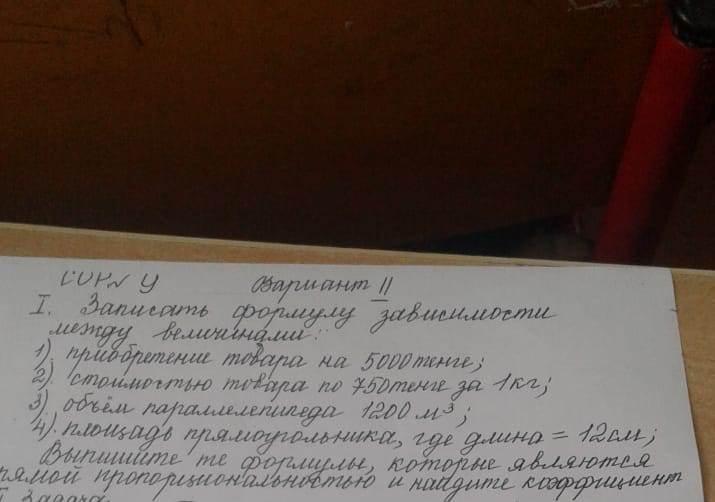 СОР№ 4 Вариант II
I. Записать формулу зависимости
между величинами:
1). приобретение товара на 5000 тенге;
2). стоимостью товара по 750 тенге за 1 кг;
3) объём параллелепипеда 1200 м³;
4). площадь прямоугольника, где длина = 12 см;
Выпишите те формулы, которые являются
рямой пропорциональностью и найдите коэффициент
Задача